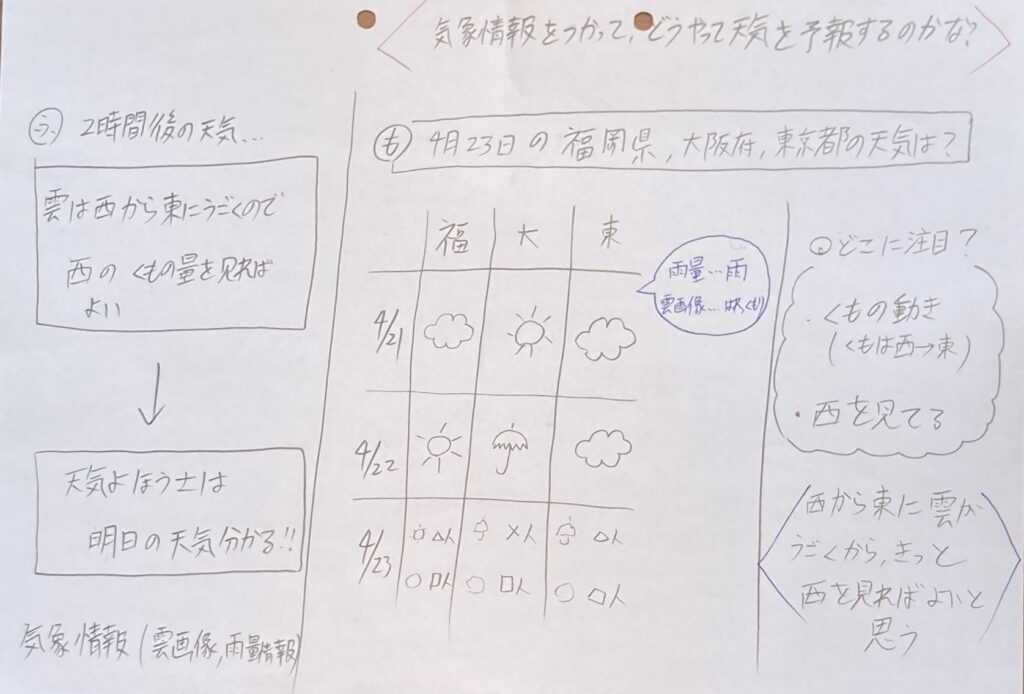 気象情報をつかって、どうやって天気を予報するのかな?
ふ 2時間後の天気...
雲は西から東にうごくので
西のくもの量を見れば
よい
天気よほう士は
明日の天気分かる!!
気象情報(雲画像,雨量情報)
も 4月23日の福岡県,大阪府,東京都の天気は?
福 大 東
4/21
4/22
4/23
△人 ×人 △人
○ □人 ○ □人 ○ □人
雨量...雨
雲画像...はれ,くもり
Q どこに注目?
・くもの動き
(くもは西→東)
・西を見てる
西から東に雲が
うごくから,きっと
西を見ればよいと
思う